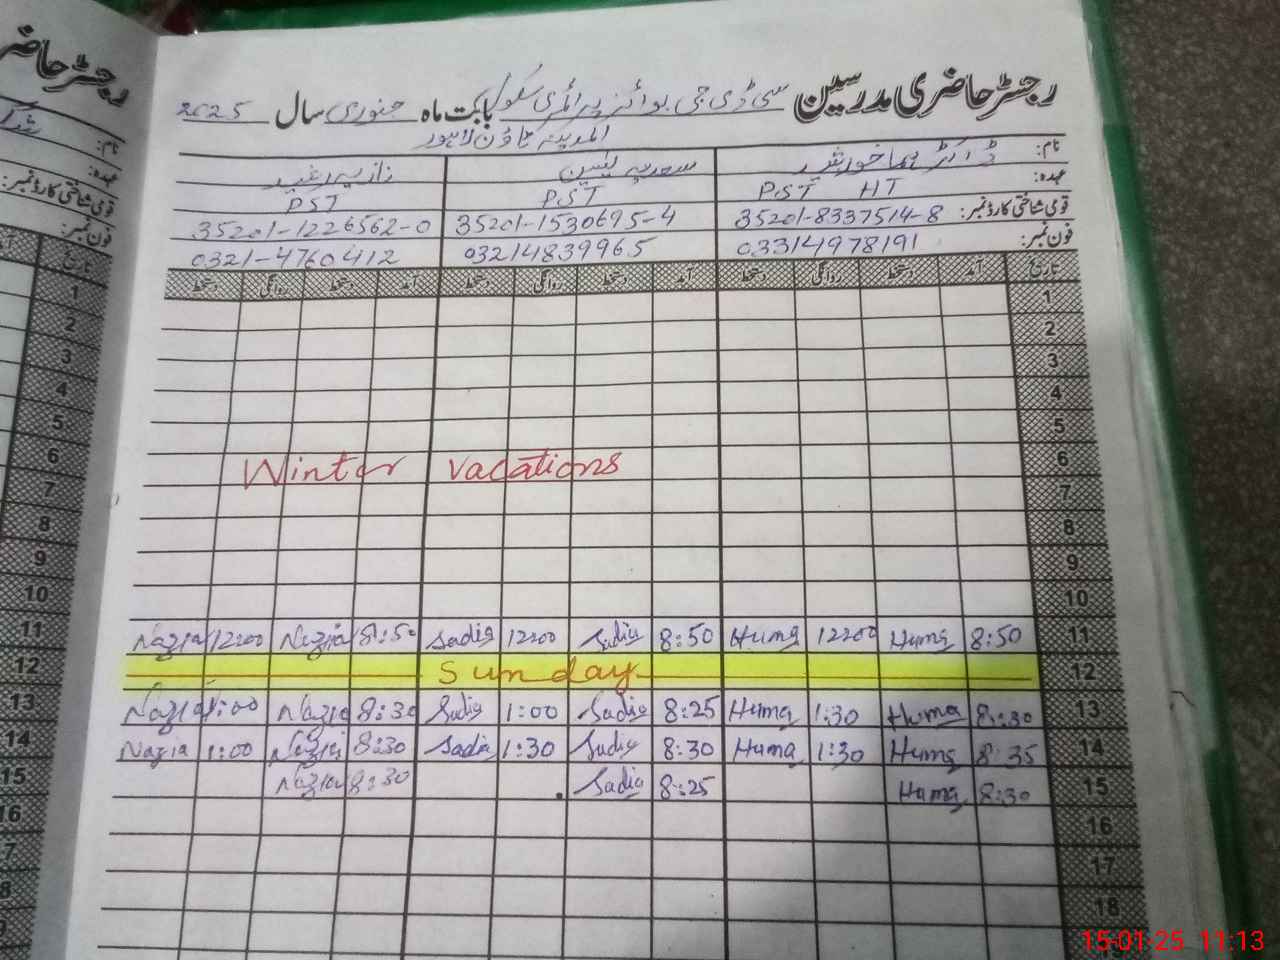 رجسٹر حاضری مدرسین سی ڈی جی بوائز پرائمری سکول بابت ماہ جنوری سال 2025
المدینہ ٹاؤن لاہور
نام: ڈاکٹر ہما خورشید سعدیہ یٰسین نازیہ
عہدہ: PST HT PST PST
قومی شناختی کارڈ نمبر: 35201-8337514-8 35201-1530695-4 35201-1226562-0
فون نمبر: 03314978191 03214839965 0321-4760412
تاریخ آمد دستخط روانگی دستخط آمد دستخط روانگی دستخط آمد دستخط روانگی دستخط
1
2
3
4
5
Winter vacations 6
7
8
9
10
Nazia 12:00 Nazia 8:50 Sadia 12:00 Sadia 8:50 Huma 12:00 Huma 8:50 11
Sunday 12
Nazia 1:00 Nazia 8:30 Sadia 1:00 Sadia 8:25 Huma 1:30 Huma 8:30 13
Nazia 1:00 Nazia 8:30 Sadia 1:30 Sadia 8:30 Huma 1:30 Huma 8:35 14
Nazia 8:30 Sadia 8:25 Huma 8:30 15
16
17
18
رجسٹر حاضر
نام:
عہدہ:
قومی شناختی کارڈ نمبر:
فون نمبر:
تاریخ
1
2
3
4
5
6
7
8
9
10
11
12
13
14
15
16
15-01-25 11:13